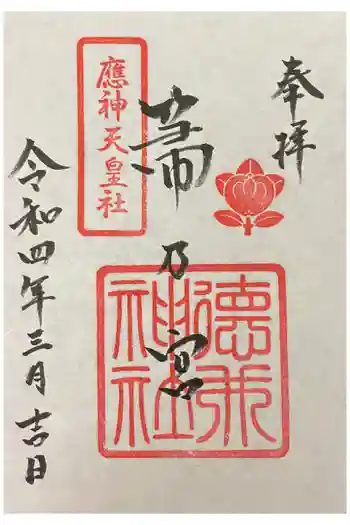 奉拝
應神天皇社
乃宮
神社
令和四年三月吉日